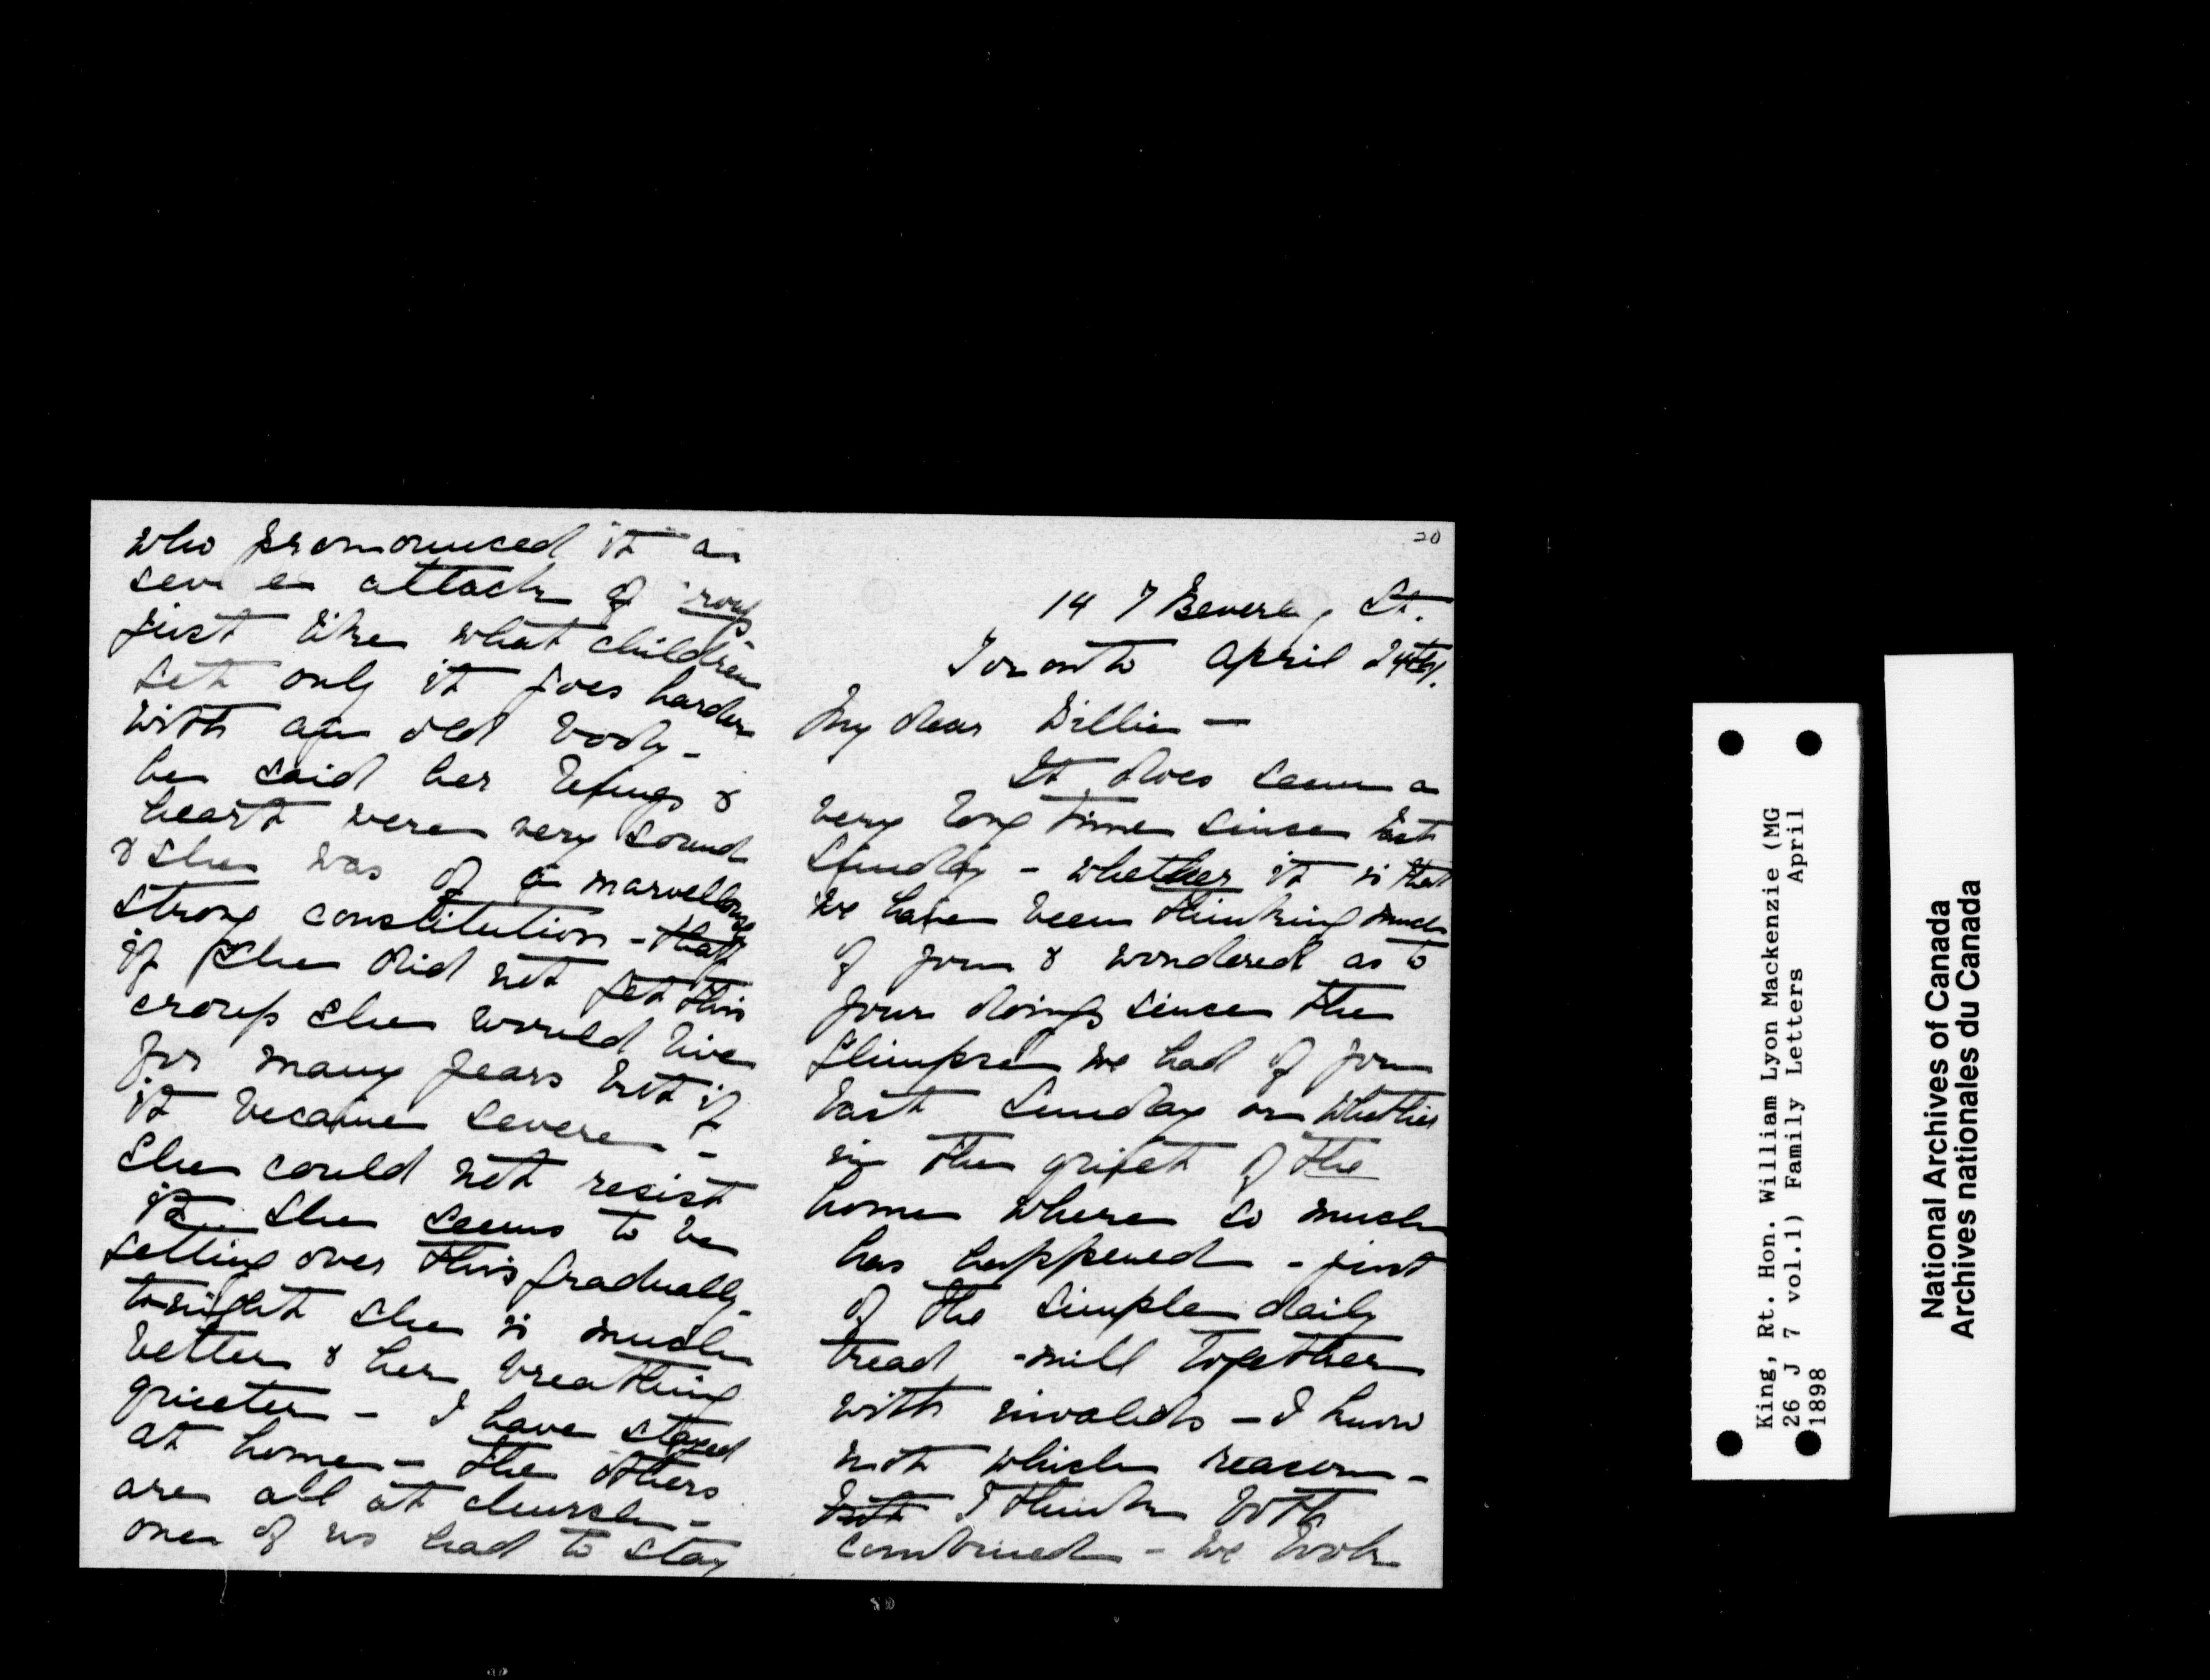 who pronounced it a
seve e attack of roup
just like what children
get only it goes harder
with an old body -
he said her lungs &
heart were very sound
& she was of a marvellous
strong constitution - that
if she did not get this
croup she would live
for many years but if
it became severe -
she could not resist
it. She seems to be
getting over this gradually -
tonight she is much
better & her breathing
quieter - I have stayed
at home - the others
are all at church -
one of us had to stay
20
147 Beverley St.
Toronto April 24th.
My dear Willie —
It does seem a
very long time since last
Sunday - whether it is that
we have been thinking much
of you & wondered as to
your doings since the
glimpse we had of you
last Sunday or whether
in the quiet of the
home where so much
has happened - just
of the simple daily
tread-mill together
with invalids - I know
not which reason -
but I think both
combined - we look
King, Rt. Hon. William Lyon Mackenzie (MG
26 J 7 vol.1) Family Letters April
1898
National Archives of Canada
Archives nationales du Canada